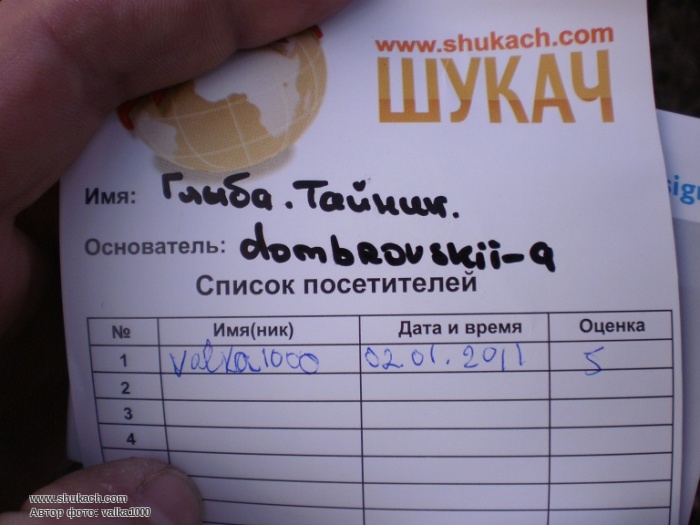 www.shukach.com
ШУКАЧ
sign
Имя: Глыба. Тайник.
Основатель: dombrovskii-a
Список посетителей
№ Имя(ник) Дата и время Оценка
1 valka1000 02.01.2011 5
2
3
4
www.shukach.com
Автор фото: valka1000